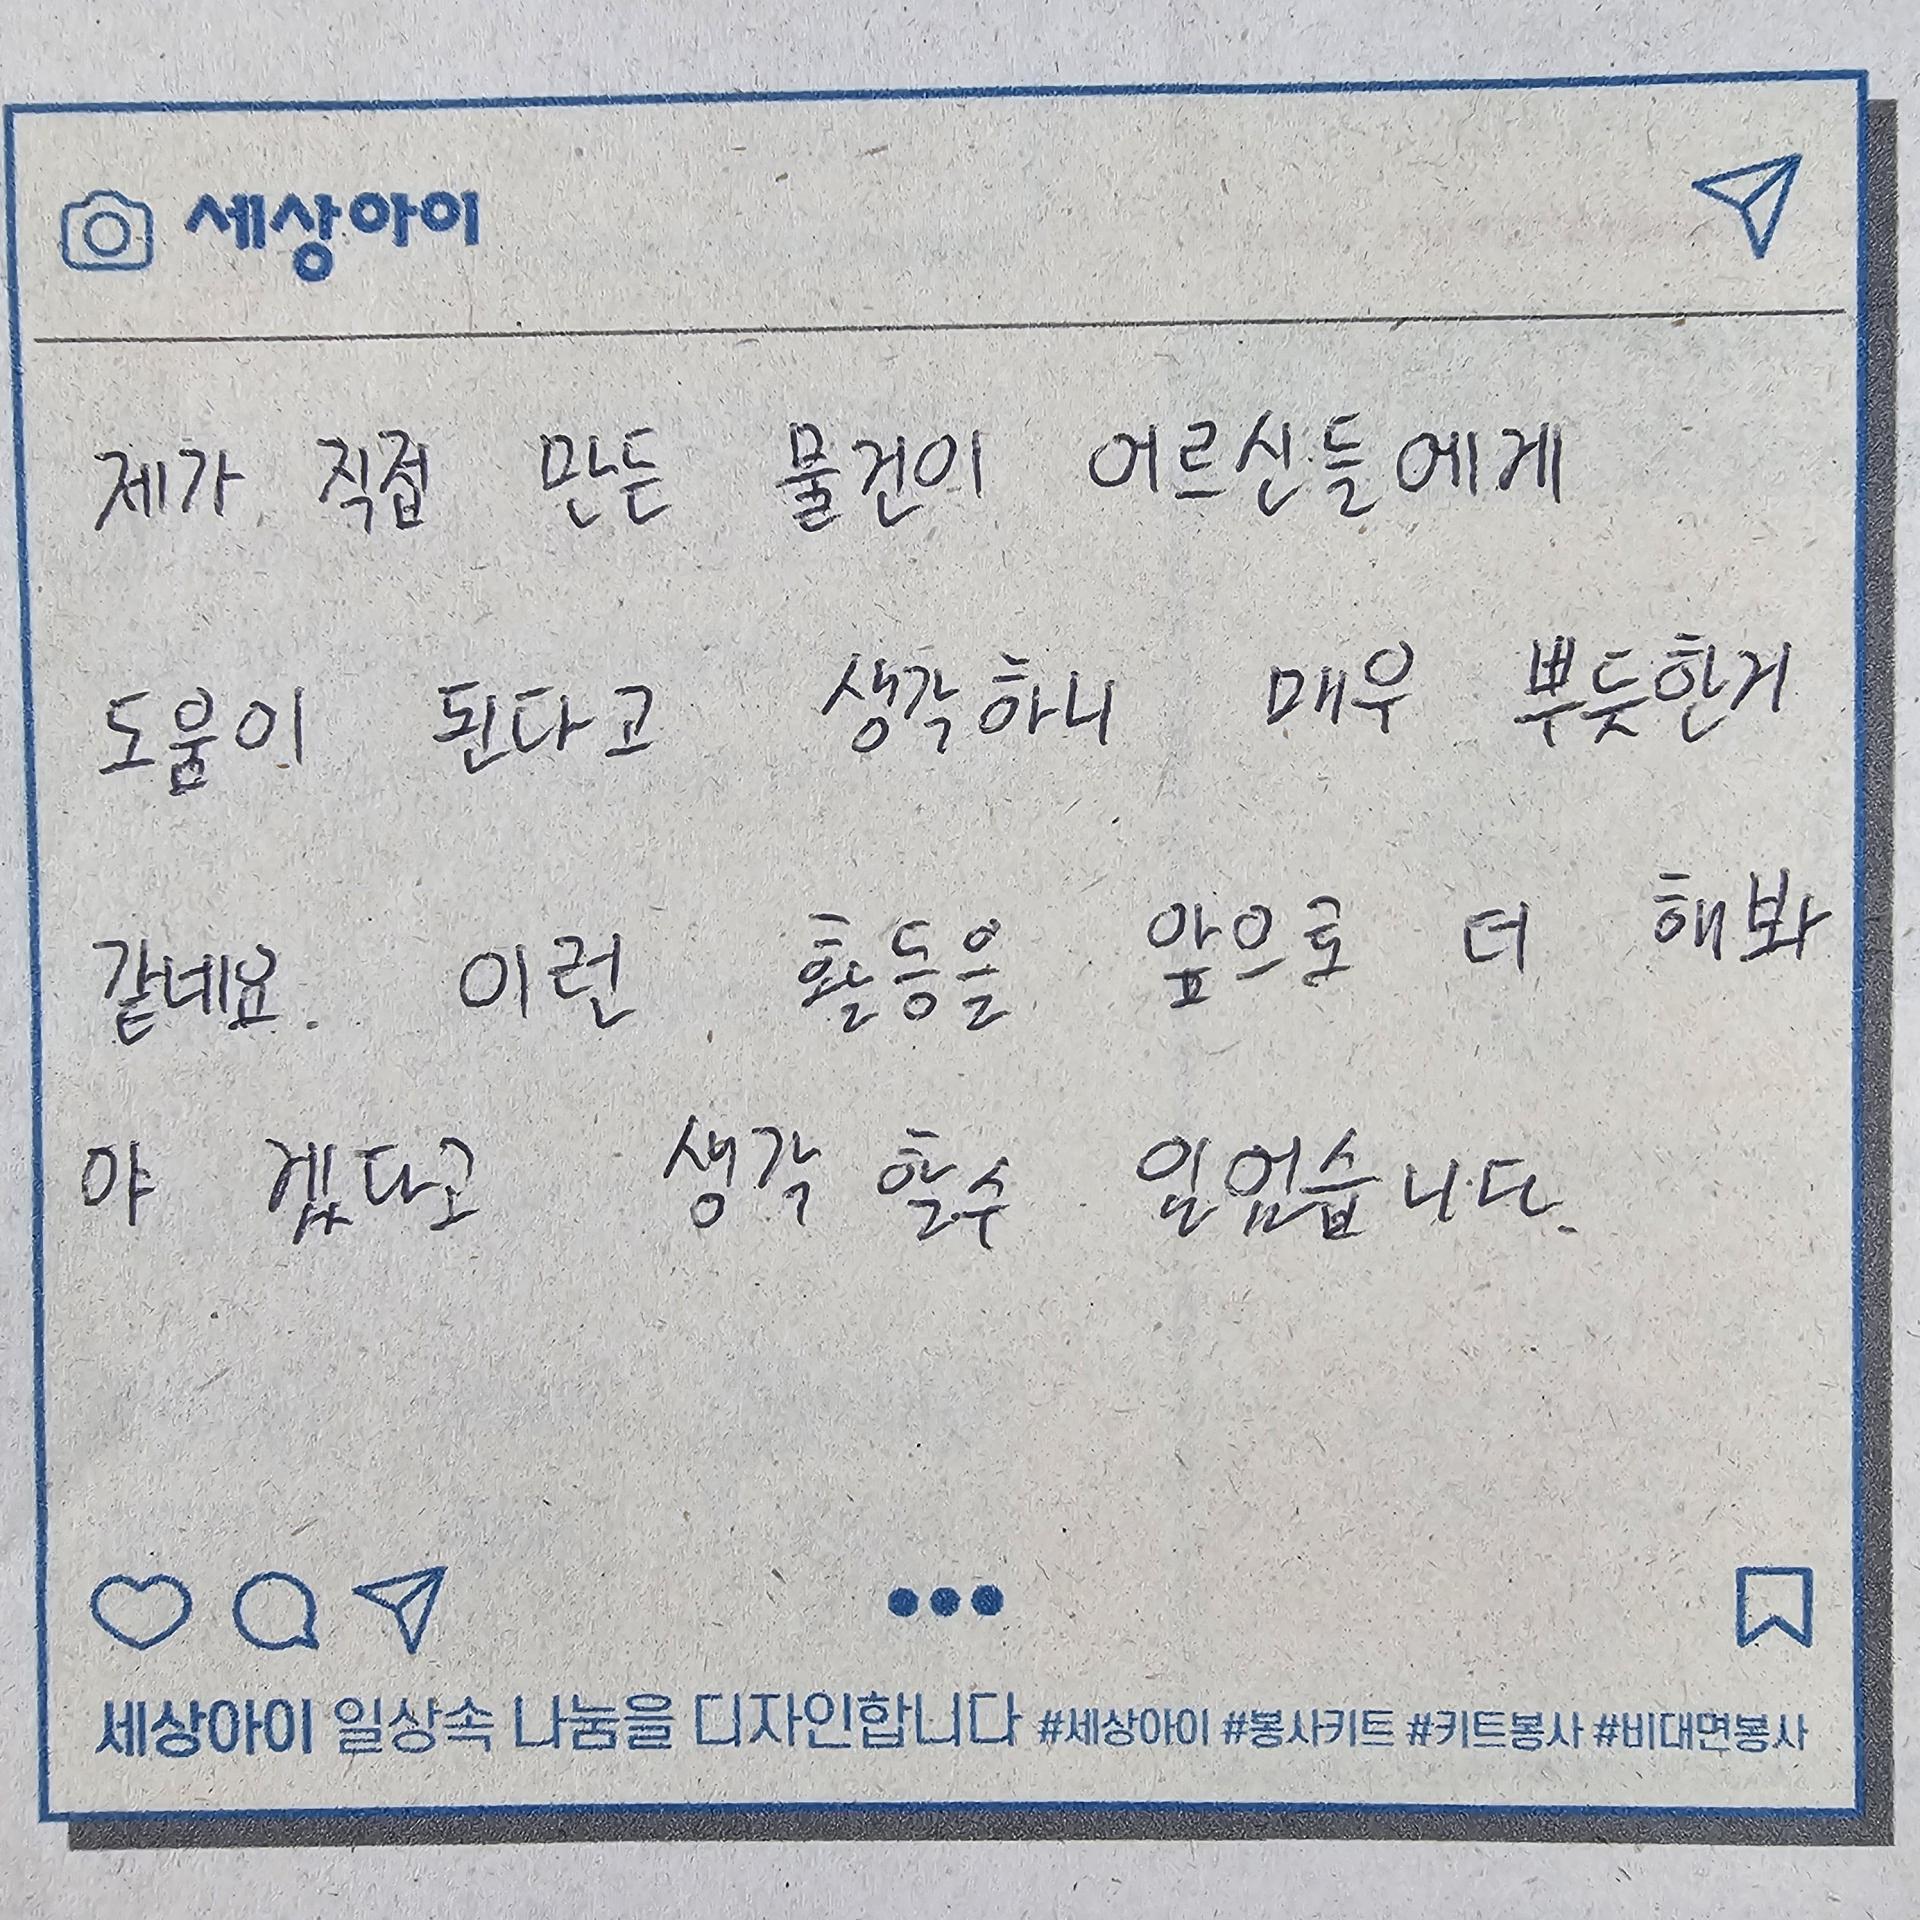 세상아이
제가 직접 만든 물건이 어르신들에게
도움이 된다고 생각하니 매우 뿌듯한거
같네요. 이런 활동을 앞으로 더 해봐
야 겠다고 생각 할수 일었습니다.
세상아이 일상속 나눔을 디자인합니다 #세상아이 #봉사키트 #키트봉사 #비대면봉사